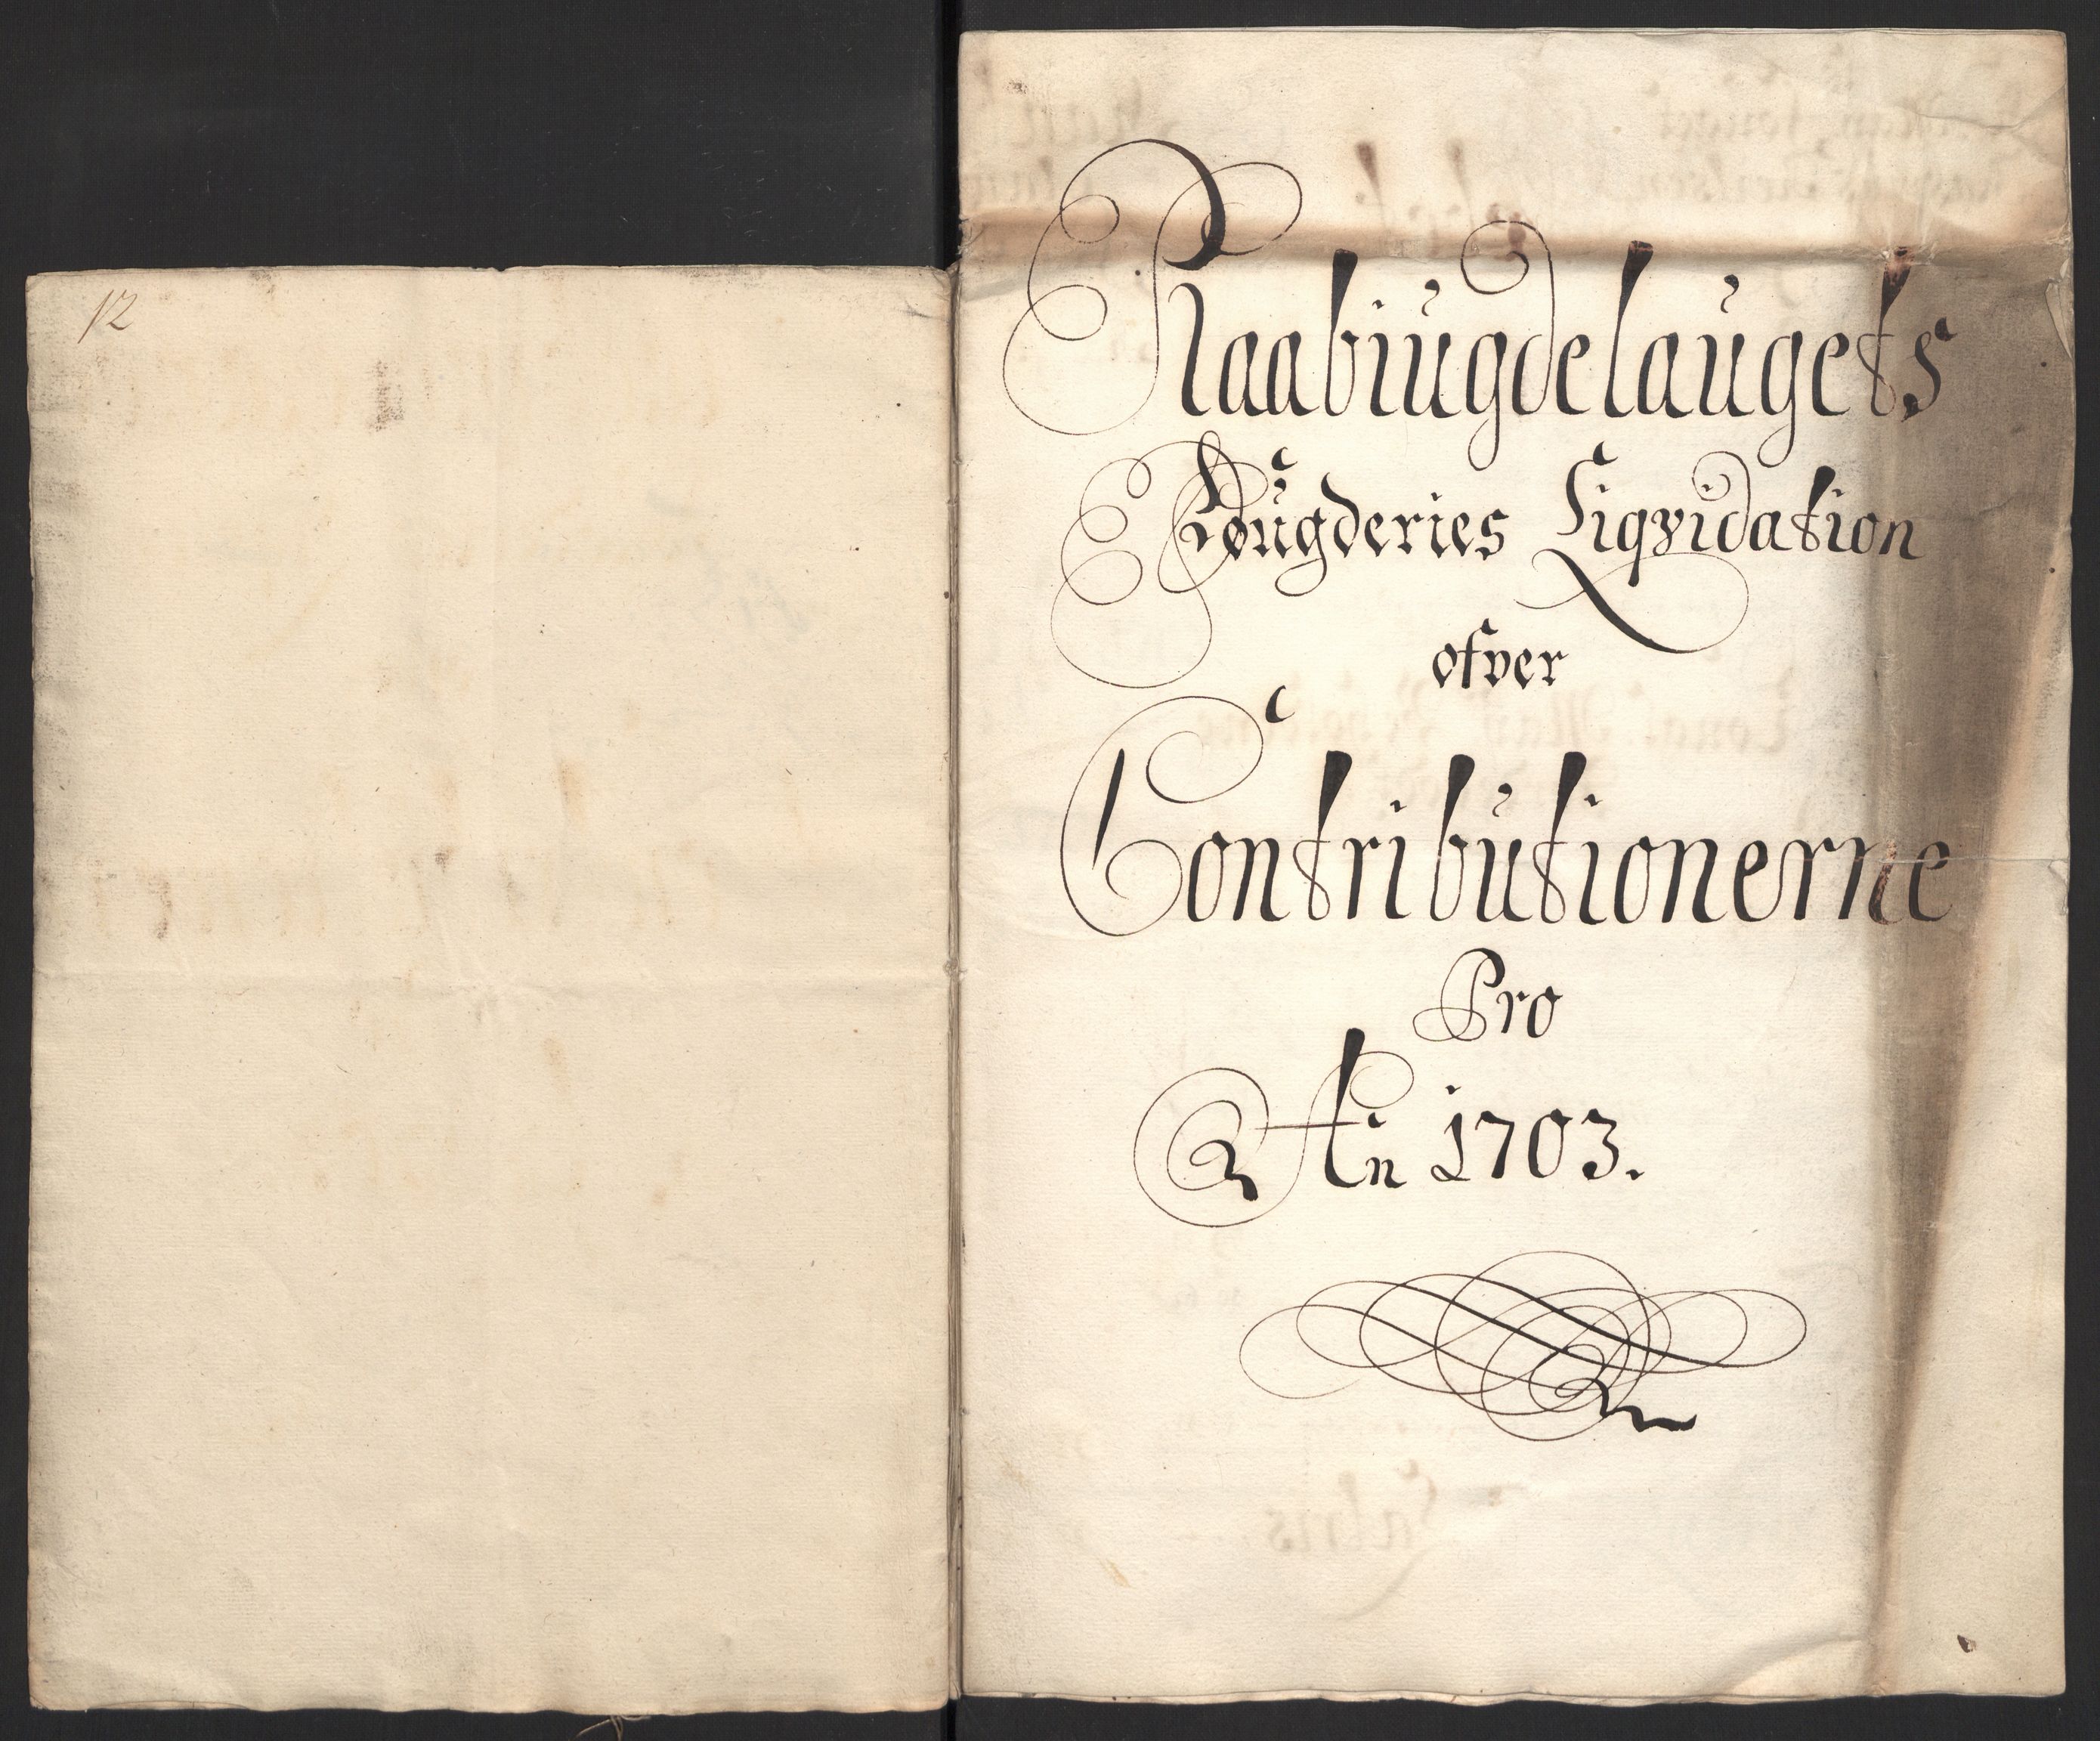 12
Raabiugdelaugets
Fougderies Liqvidation
ofver
Contributionerne
Pro
An 1703.